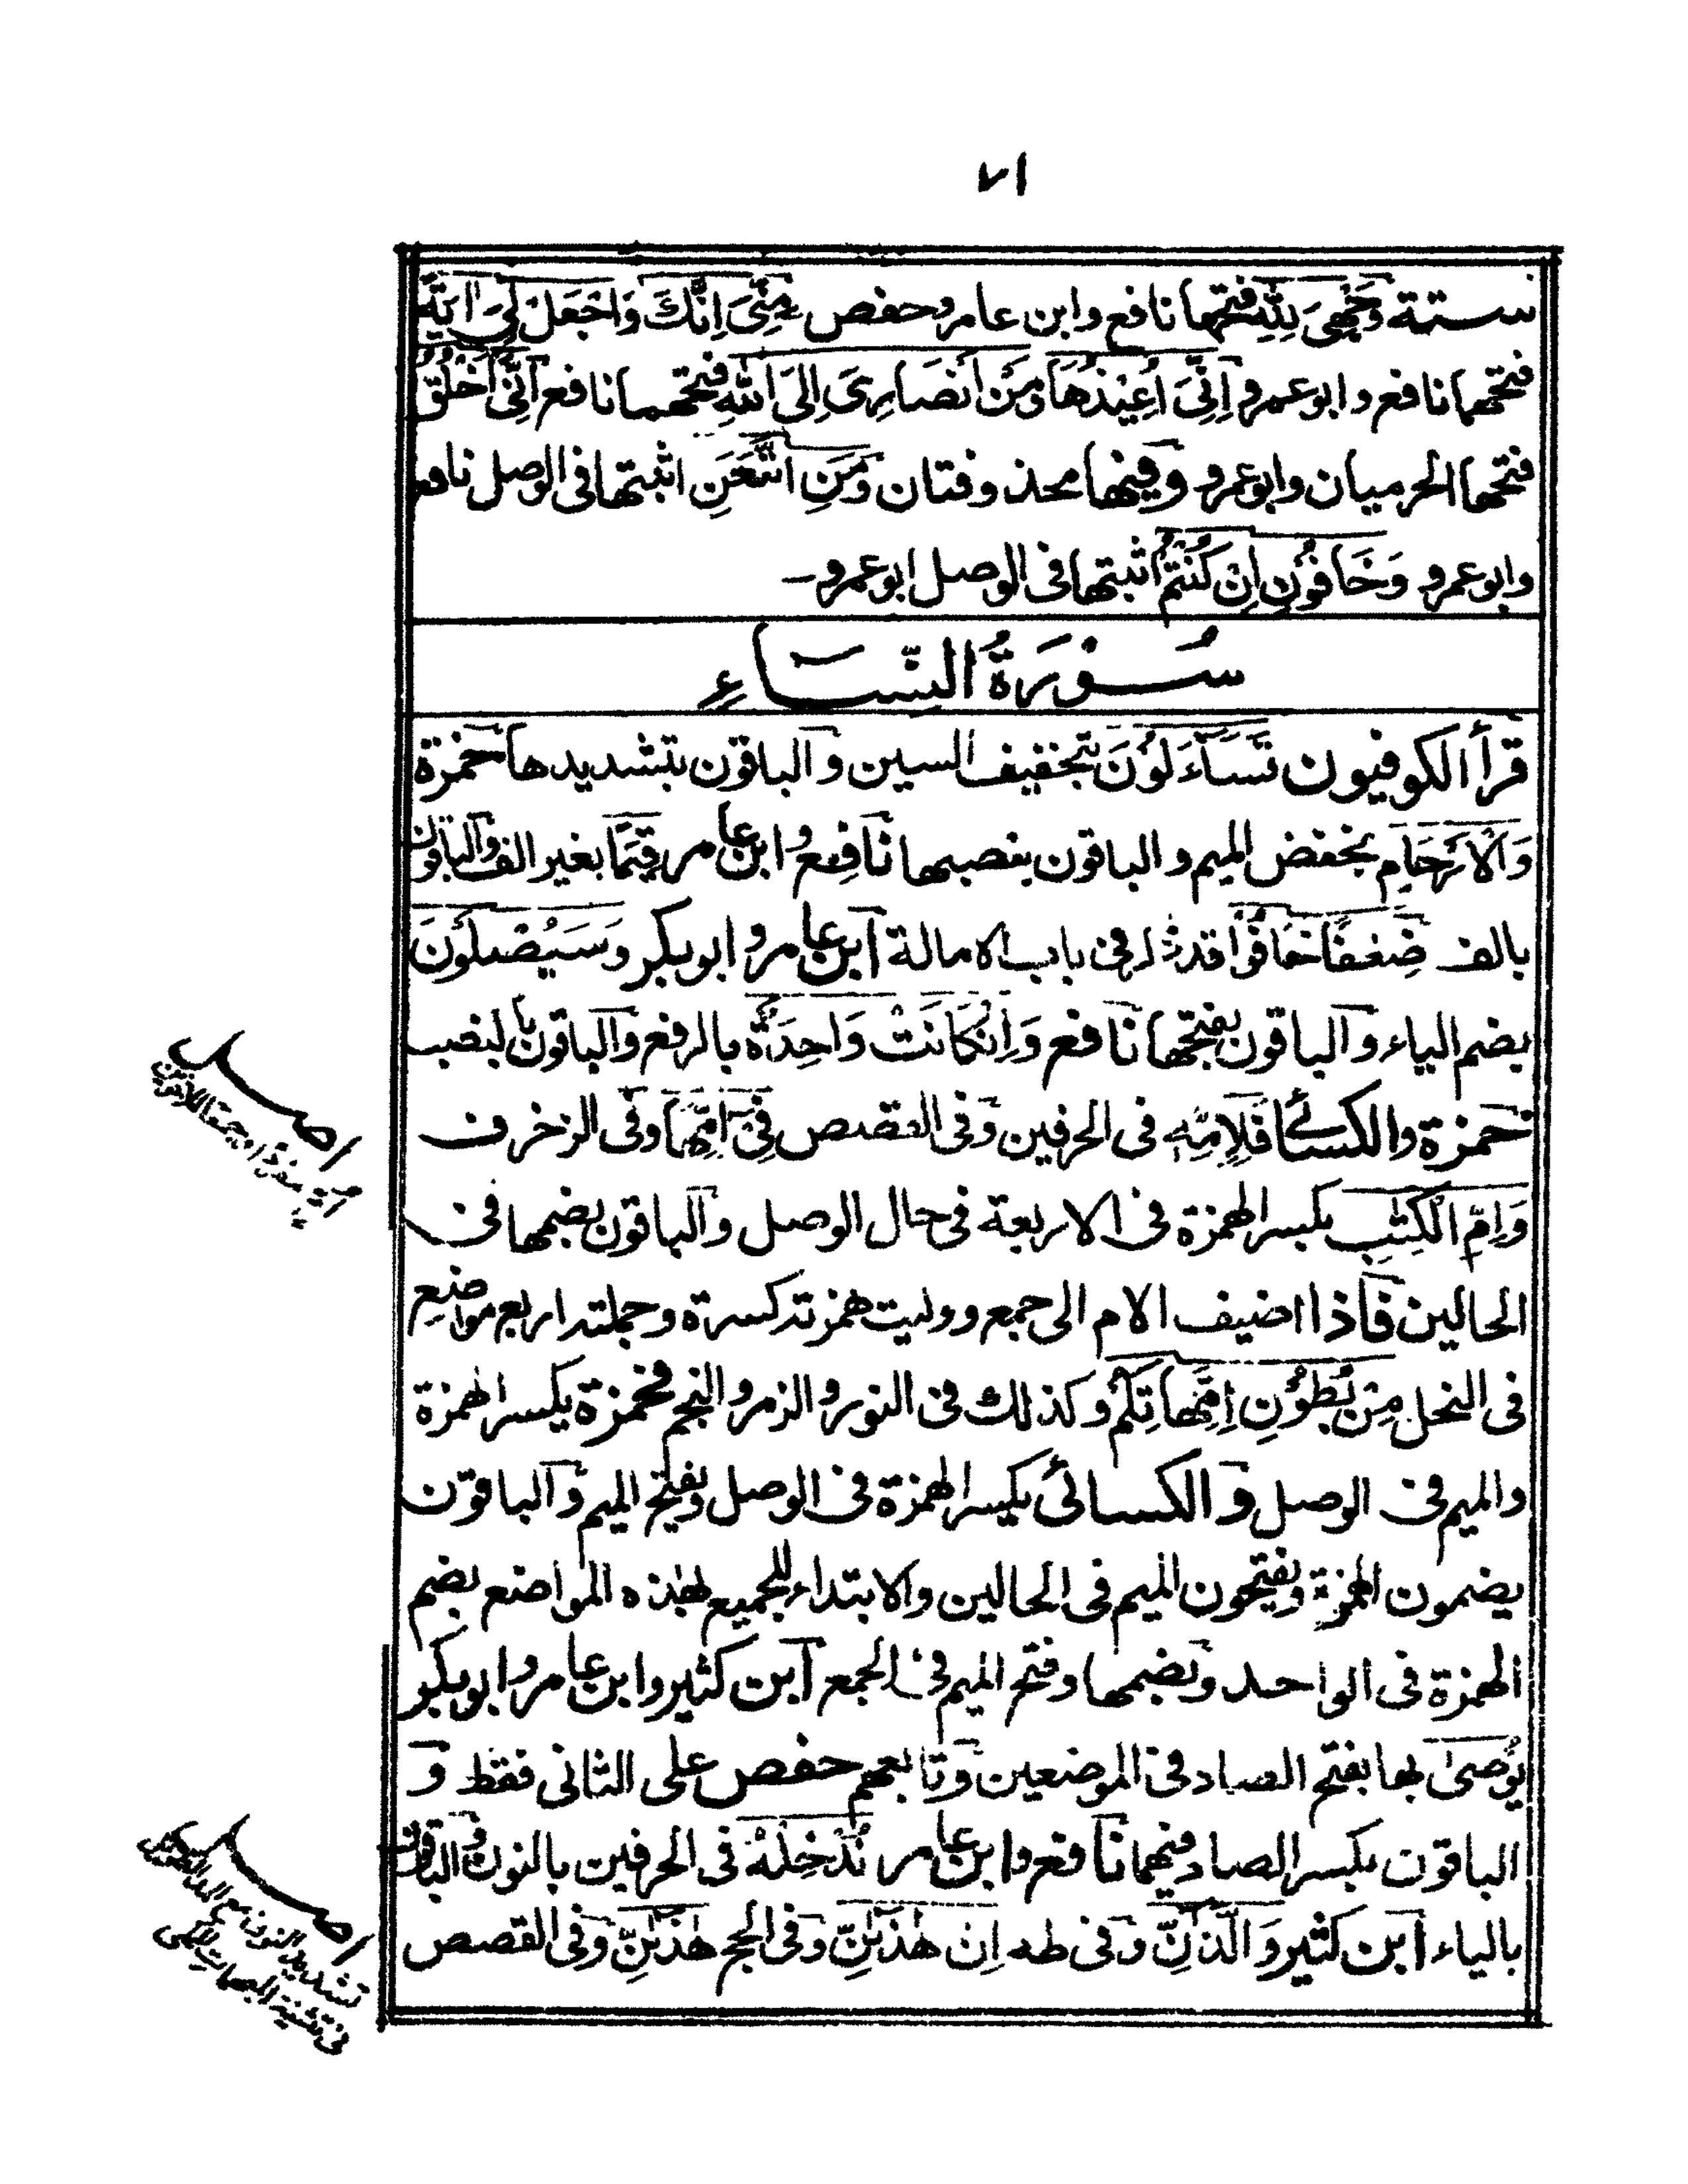 ٧١
ستة وَجْهِىَ لِلّٰهِ فتحها نافع وابن عامر وحفص مِنِّىَ اِنَّكَ وَاجْعَلْ لِىَ اٰيَةً
فتحهما نافع وابوعمرو اِنِّىَ اُعِيْذُهَا وَمَنْ اَنْصَارِىَ اِلَى اللّٰهِ فتحهما نافع اَنِّىَ اَخْلُقُ
فتحها الحرميان وابوعمرو وفيها محذوفتان وَمَنِ اتَّبَعَنِ اثبتها فى الوصل نافع
وابوعمرو وَخَافُوْنِ اِنْ كُنْتُمْ اثبتها فى الوصل ابوعمرو۔
سُوْرَةُ النِّسَاءِ
قرأ الكوفيون تَسَآءَلُوْنَ بتخفيف السين والباقون بتشديدها حمزة
وَالْاَرْحَامِ بخفض الميم والباقون بنصبها نافع وابن عامر قِيَمًا بغير الف والباقون
بالف ضِعٰفًا خَافُوْا قد ذكر فى باب الامالة ابن عامر وابو بكر وَسَيُصْلَوْنَ
بضم الياء والباقون بفتحها نافع وَاِنْ كَانَتْ وَاحِدَةٌ بالرفع والباقون بالنصب
حمزة والكسائى فَلِاِمِّهِ فى الحرفين وفى القصص فِىْ اِمِّهَا وفى الزخرف
وَاِمِّ الْكِتٰبِ بكسر الهمزة فى الاربعة فى حال الوصل والباقون بضمها فى
الحالين فاذا اضيف الام الى جمع ووليت همزته كسرة وجملته اربع مواضع
فى النحل مِنْ بُطُوْنِ اِمِّهَاتِكُمْ وكذلك فى النور والزمر والنجم فحمزة بكسر الهمزة
والميم فى الوصل والكسائى بكسر الهمزة فى الوصل وبفتح الميم والباقون
يضمون الهمزة ويفتحون الميم فى الحالين والابتداء للجميع لهذه المواضع بضم
الهمزة فى الواحد وبضمها وفتح الميم فى الجمع ابن كثير وابن عامر وابو بكر
يُوْصٰى بها بفتح الصاد فى الموضعين وتابعهم حفص على الثانى فقط و
الباقون بكسر الصاد فيهما نافع وابن عامر نُدْخِلْهُ فى الحرفين بالنون والباقون
بالياء ابن كثير وَالَّذٰنِّ وفى طه اِنْ هٰذٰنِّ وفى الحج هٰذٰنِّ وفى القصص
اصل
اصل
تشديد النون مع المد